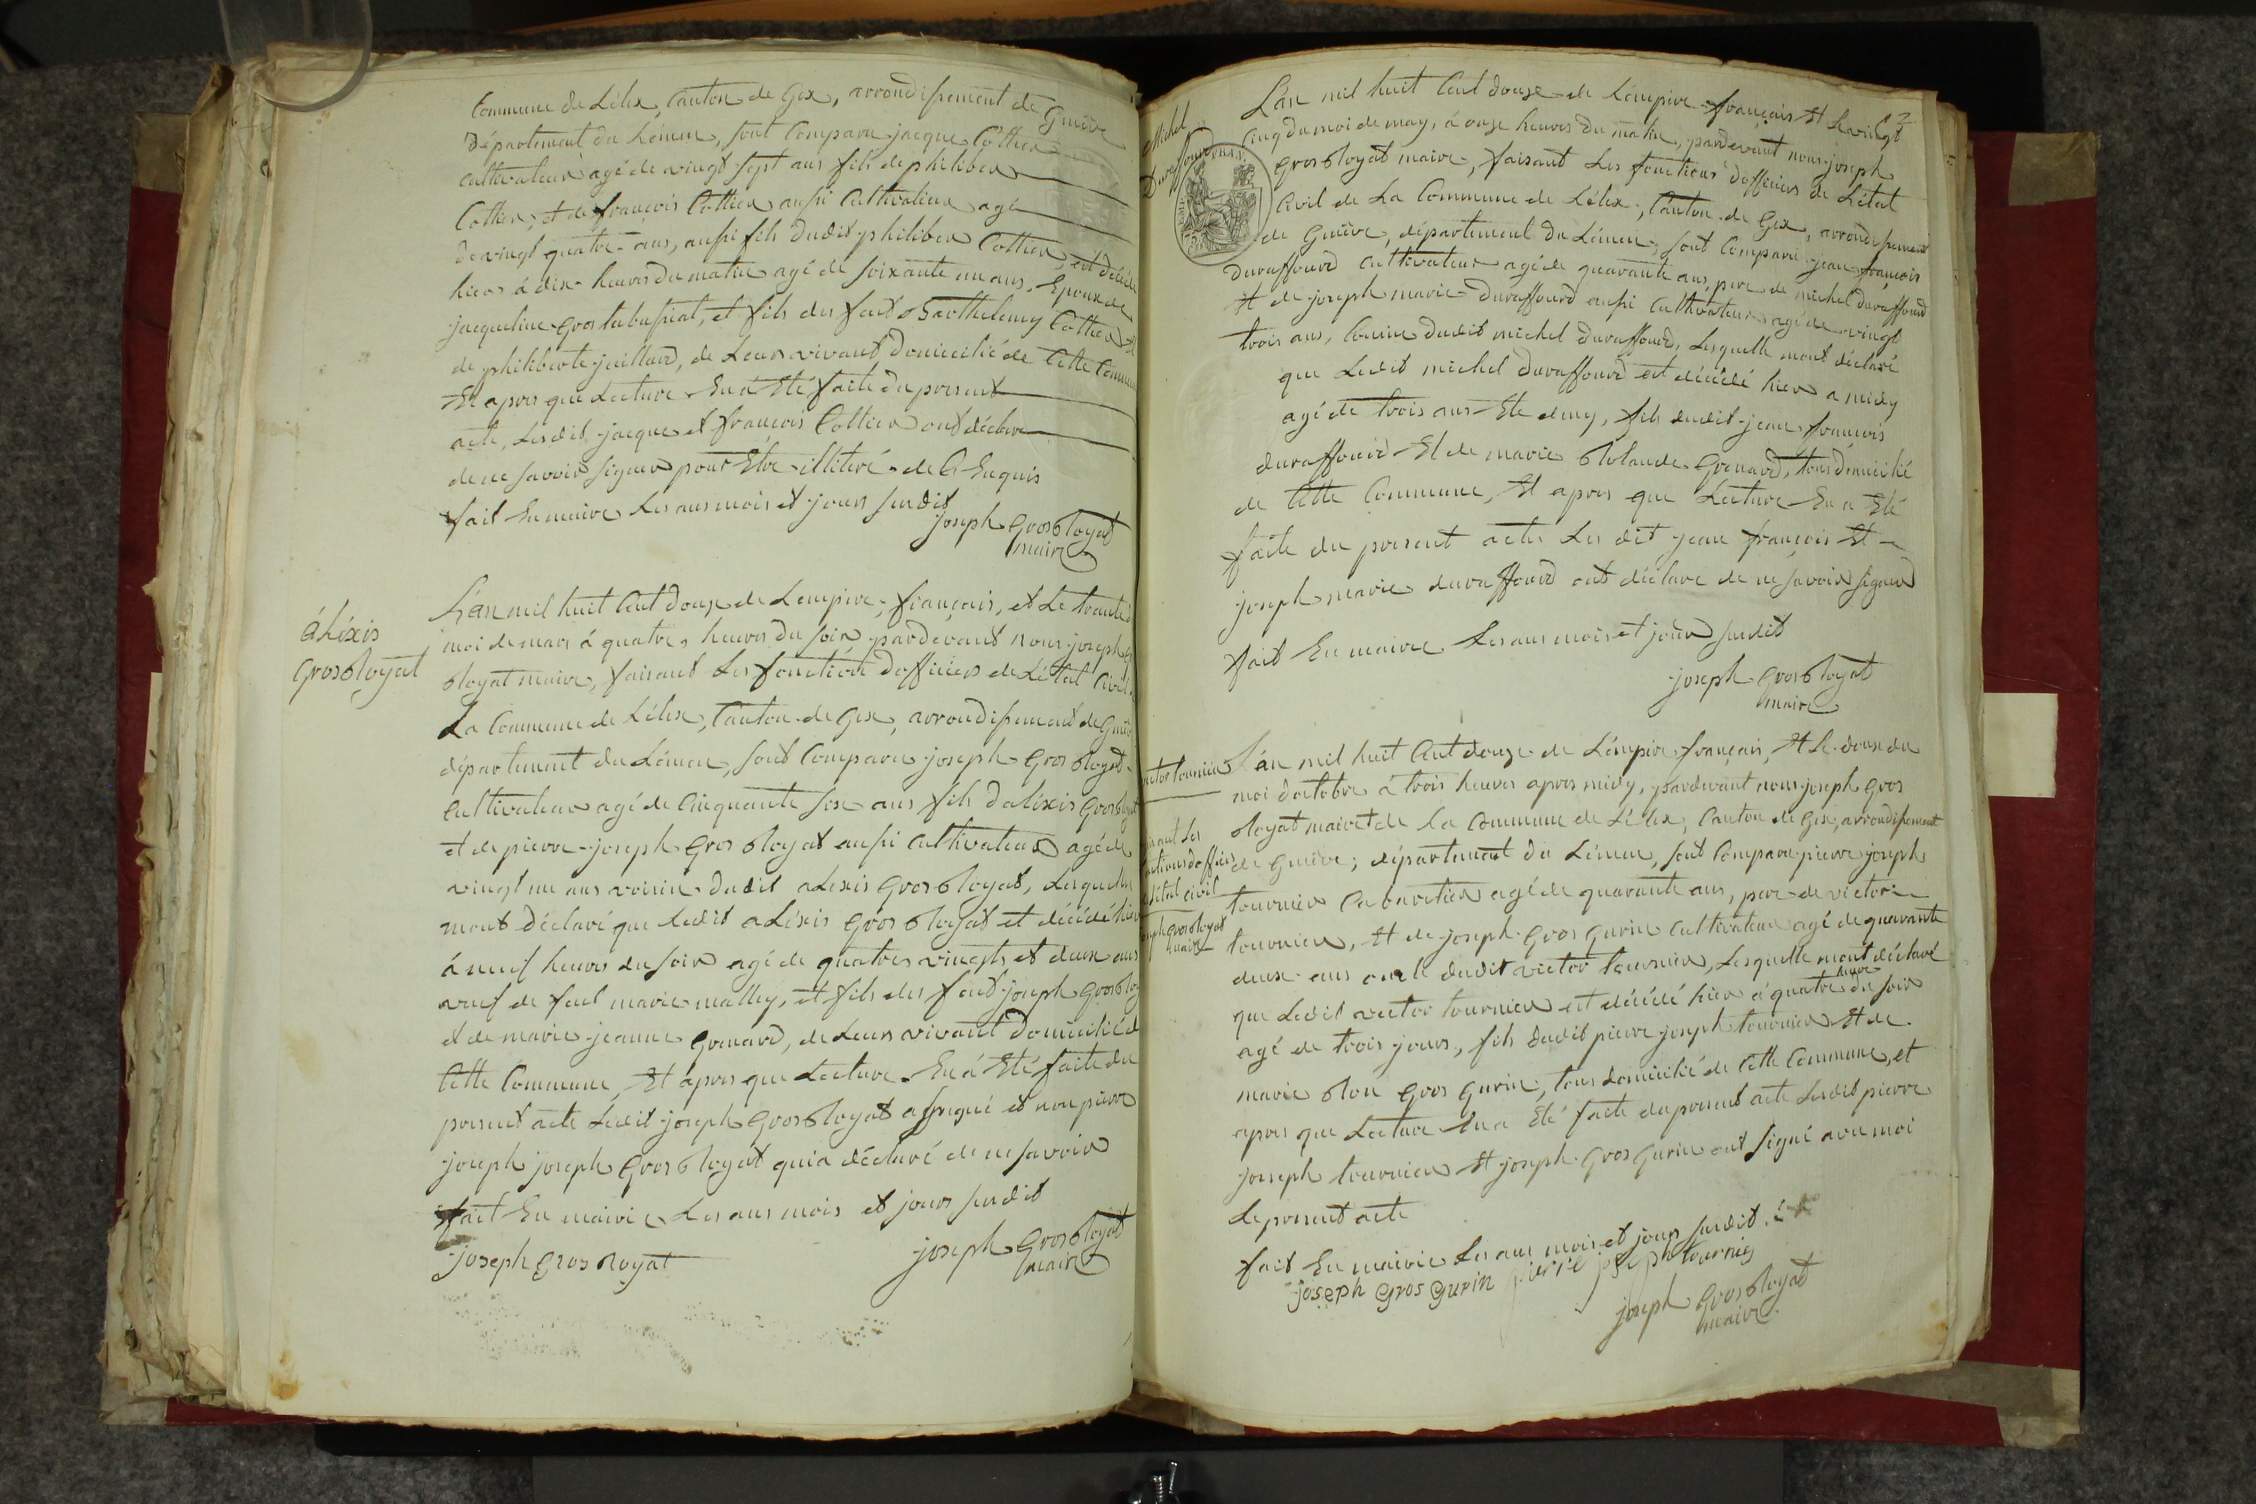 Commune de Lélex, Canton de Gex, arrondissement de Genève
Département du Léman, sont Comparu jacque Cottier
cultivateur agé de vingt sept ans fils de philiber
Cottier, et de françois Cottier aussi Cultivateur agé
de vingt quatre ans, aussi fils dudit philiber Cottier, est décédé
hier à dix heures du matin agé de soixante un ans, Epoux de
jacqueline grostabussiat, et fils des feud Barthelemy Cottier et
de philiberte juillard, de Leur vivant domicilié de Cette Commune
Et apres que Lecture En á Eté faite du present
acte, Lesdit jacque et françois Cottier ont déclare
de ne savoir signer pour Etre illiteré de Ce Enquis
fait En mairie Les ans mois et jours susdit
joseph Grosroyat
maire
áléxis
Grosroyat
L'an mil huit Cent douze de Lempire français, et Le trante du
moi de mars á quatre heures du soir pardevant nous joseph G
royat maire, faisant Les fonction dofficiers de Létat Civil
La Commune de Lélex, Canton de Gex, arrondissement de Genève
département du Léman, sont Comparu joseph Gros royat
Cultivateur agé de Cinquante six ans fils daléxis Grosroyat
et de pierre joseph Gros royat aussi Cultivateur agé de
vingt un ans voisin dudit alexis Grosroyat, Lesquelle
mont déclaré que Ledit aléxis Gros royat et décédé hier
á neuf heures du soir agé de quatres vingts et deux ans
veuf de feue marie malley, et fils des feud joseph Grosroy
et de marie jeanne Grenard, de Leur vivant domicilié de
Cette Commune, Et apres que Lecture En á Eté faite du
present acte Ledit joseph Grosroyat a signé et non pierre
joseph joseph Gros royat qui a déclaré de ne savoir
fait En mairie Les ans mois et jours susdit
joseph Gros royat
joseph Grosroyat
maire
2
Michel
Duraffourd
L'an mil huit Cent douze de Lempire français Et Le vingt
Cinq du moi de may, á onze heures du matin, pardevant nous joseph
Gros royat maire, faisant Les fonctions dofficiers de Létat
Civil de La Commune de Lélex, Canton de Gex, arrondissement
de Genève, département du Léman, sont Comparu jean françois
duraffourd cultivateur agé de quarante ans, pere de michel duraffourd
Et de joseph marie duraffourd aussi Cultivateur agé de vingt
trois ans, Cousin dudit michel duraffourd, Lesquelle mont déclaré
que Ledit michel duraffourd est décédé hier a midy
agé de trois ans Et demy, fils dudit jean françois
duraffourd Et de marie rolande Grenard, tous domicilié
de Cette Commune, Et apres que Lecture En a Eté
faite du present actes Les dit jean françois Et
joseph marie duraffourd ont déclare de ne savoir signer
fait En mairie Les ans mois et jour susdit
joseph Gros royat
maire
victor tournier
L'an mil huit Cent douze de Lempire français, Et Le douze du
moi doctobre á trois heures apres midy, pardevant nous joseph Gros
royat maire de la Commune de Lélex, Canton de Gex, arrondissement
de Genève, département du Léman, sont Comparu pierre joseph
tournier Cabaretier agé de quarante ans, pere de victor
tournier, Et de joseph Gros Gurin Cultivateur agé de quarante
deux ans oncle dudit victor tournier, Lesquelle mont déclaré
que Ledit victor tournier est décédé hier á quatre heure du soir
agé de trois jours, fils dudit pierre joseph tournier Et de
marie Gros Gurin, tous domicilié de Cette Commune, et
apres que Lecture En a Eté faite du present acte Lesdit pierre
joseph tournier Et joseph Gros Gurin ont signé avec moi
Le present acte
fait En mairie Les ans mois et jours susdit
faisant Les
fonctions dofficier
de létat civil
joseph Grosroyat
maire
joseph Gros Gurin pierre joseph tournier
joseph Gros royat
maire